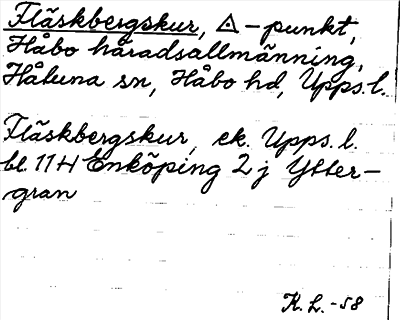 Fläskbergskur, △-punkt,
Håbo häradsallmänning,
Håtuna sn, Håbo hd, Upps. l.
Fläskbergskur, ek. Upps. l.
bl. 11H Enköping 2 j Ytter-
gran
K. L. -58